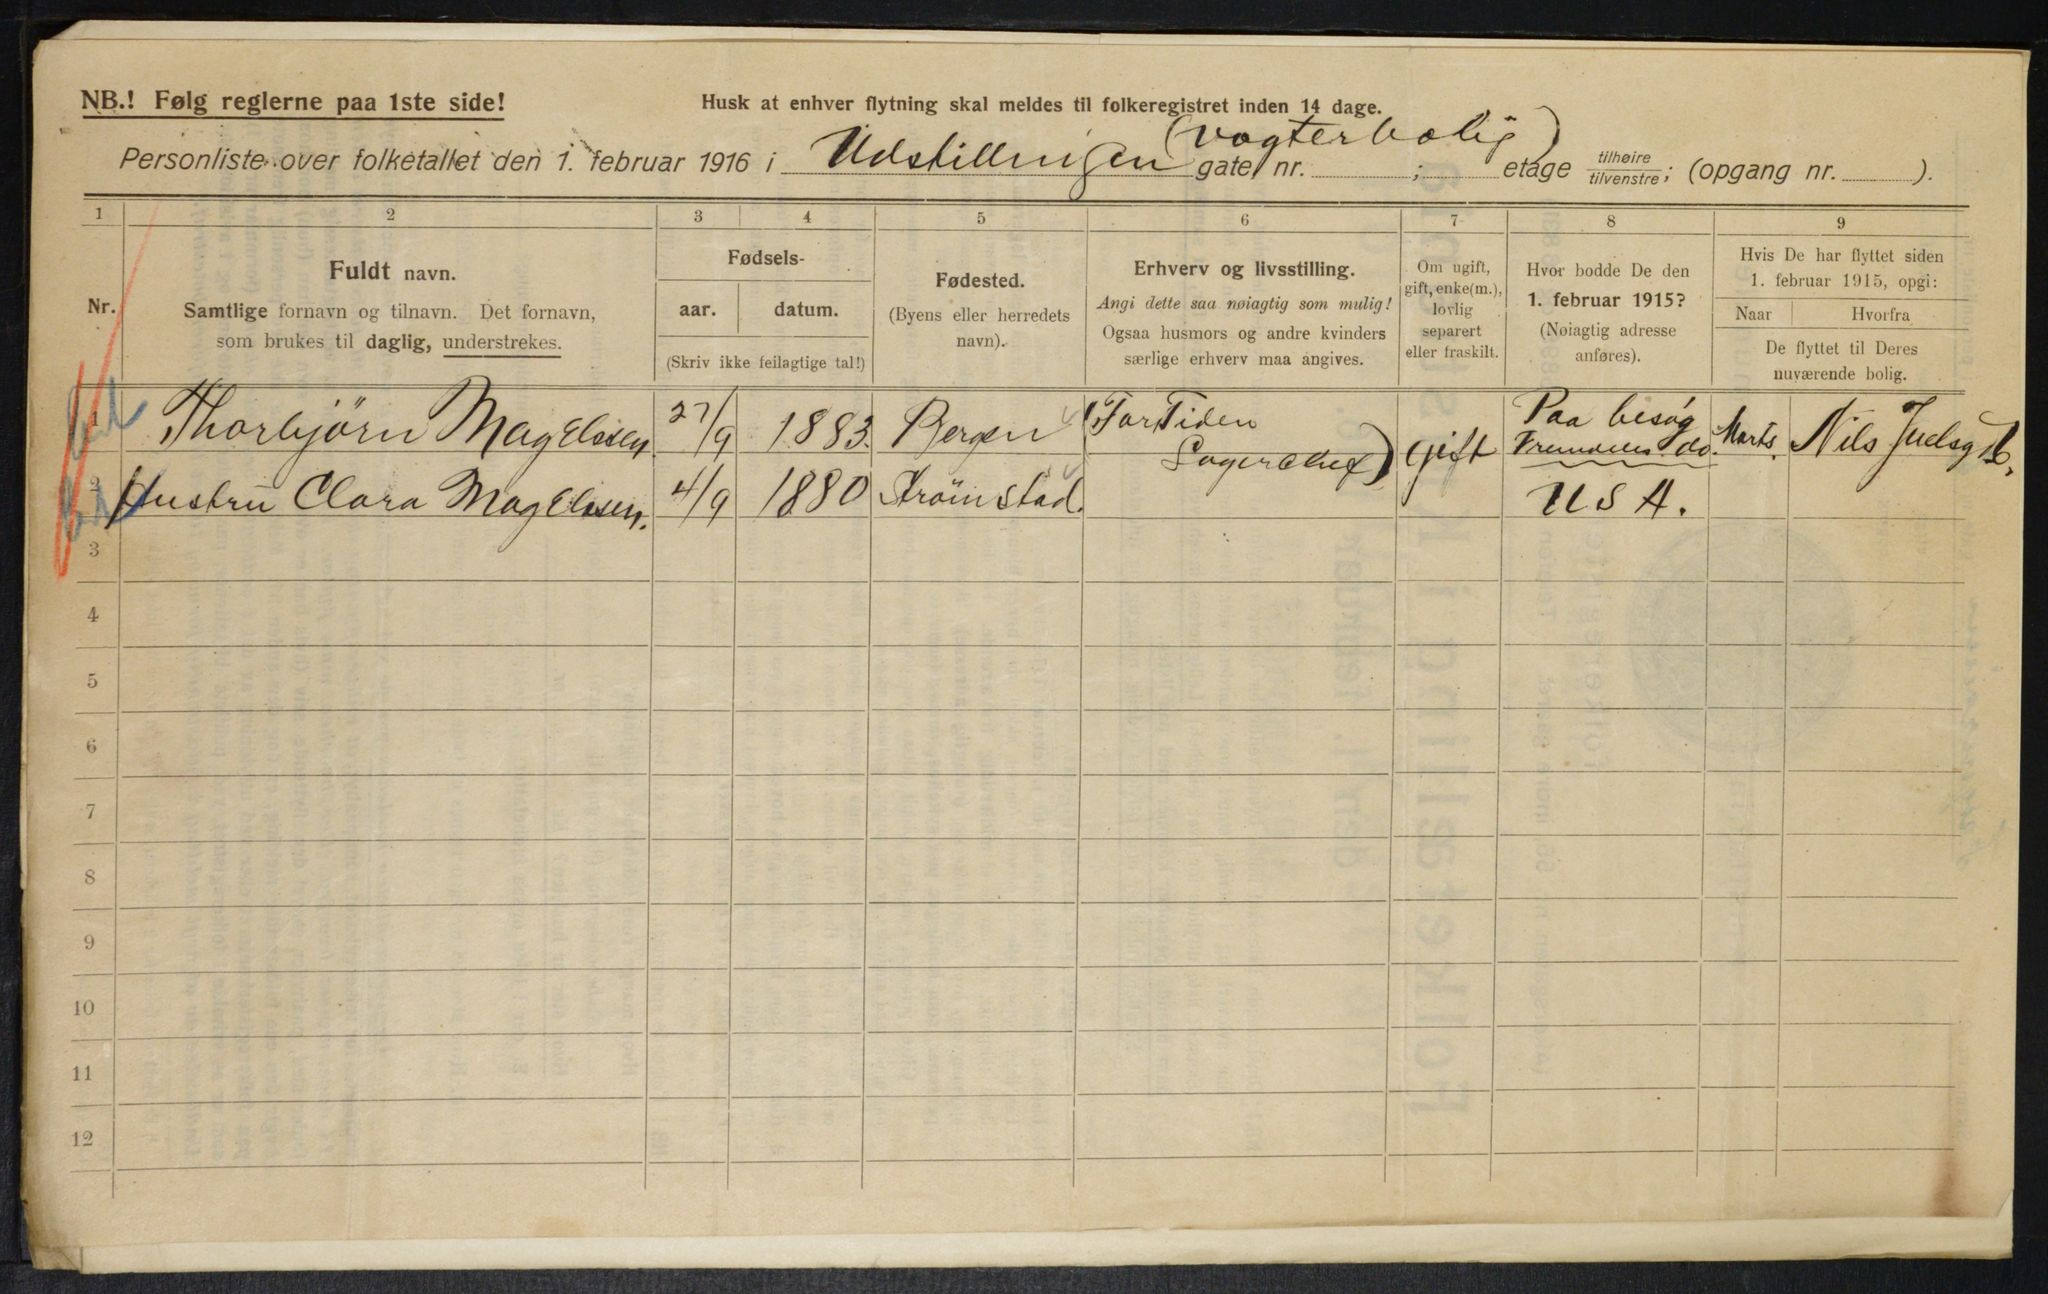 NB.! Følg reglerne paa 1ste side!
Husk at enhver flytning skal meldes til folkeregistret inden 14 dage.
(Vagterbolig)
Personliste over folketallet den 1. februar 1916 i Udstillingen gate, nr. ; etage tilhøire tilvenstre; (opgang nr. ).
1 2 3 4 5 6 7 8 9
Nr.
Fuldt navn.
Samtlige fornavn og tilnavn. Det fornavn,
som brukes til daglig, understrekes.
Fødsels-
aar. datum.
(Skriv ikke feilagtige tal!)
Fødested.
(Byens eller herredets
navn).
Erhverv og livsstilling.
Angi dette saa nøiagtig som mulig!
Ogsaa husmors og andre kvinders
særlige erhverv maa angives.
Om ugift,
gift, enke(m.),
lovlig
separert
eller fraskilt.
Hvor bodde De den
1. februar 1915?
(Nøiagtig adresse
anføres).
Hvis De har flyttet siden
1. februar 1915, opgi:
Naar Hvorfra
De flyttet til Deres
nuværende bolig.
1 Thorbjörn Magelssen 27/9 1883. Bergen (For Tiden
Lagerchef) gift Paa besøg
do. Marts. Nils Juelsgt.
2 Hustru Clara Magelssen. 4/9 1880 Strömstad. USA.
3
4
5
6
7
8
9
10
11
12